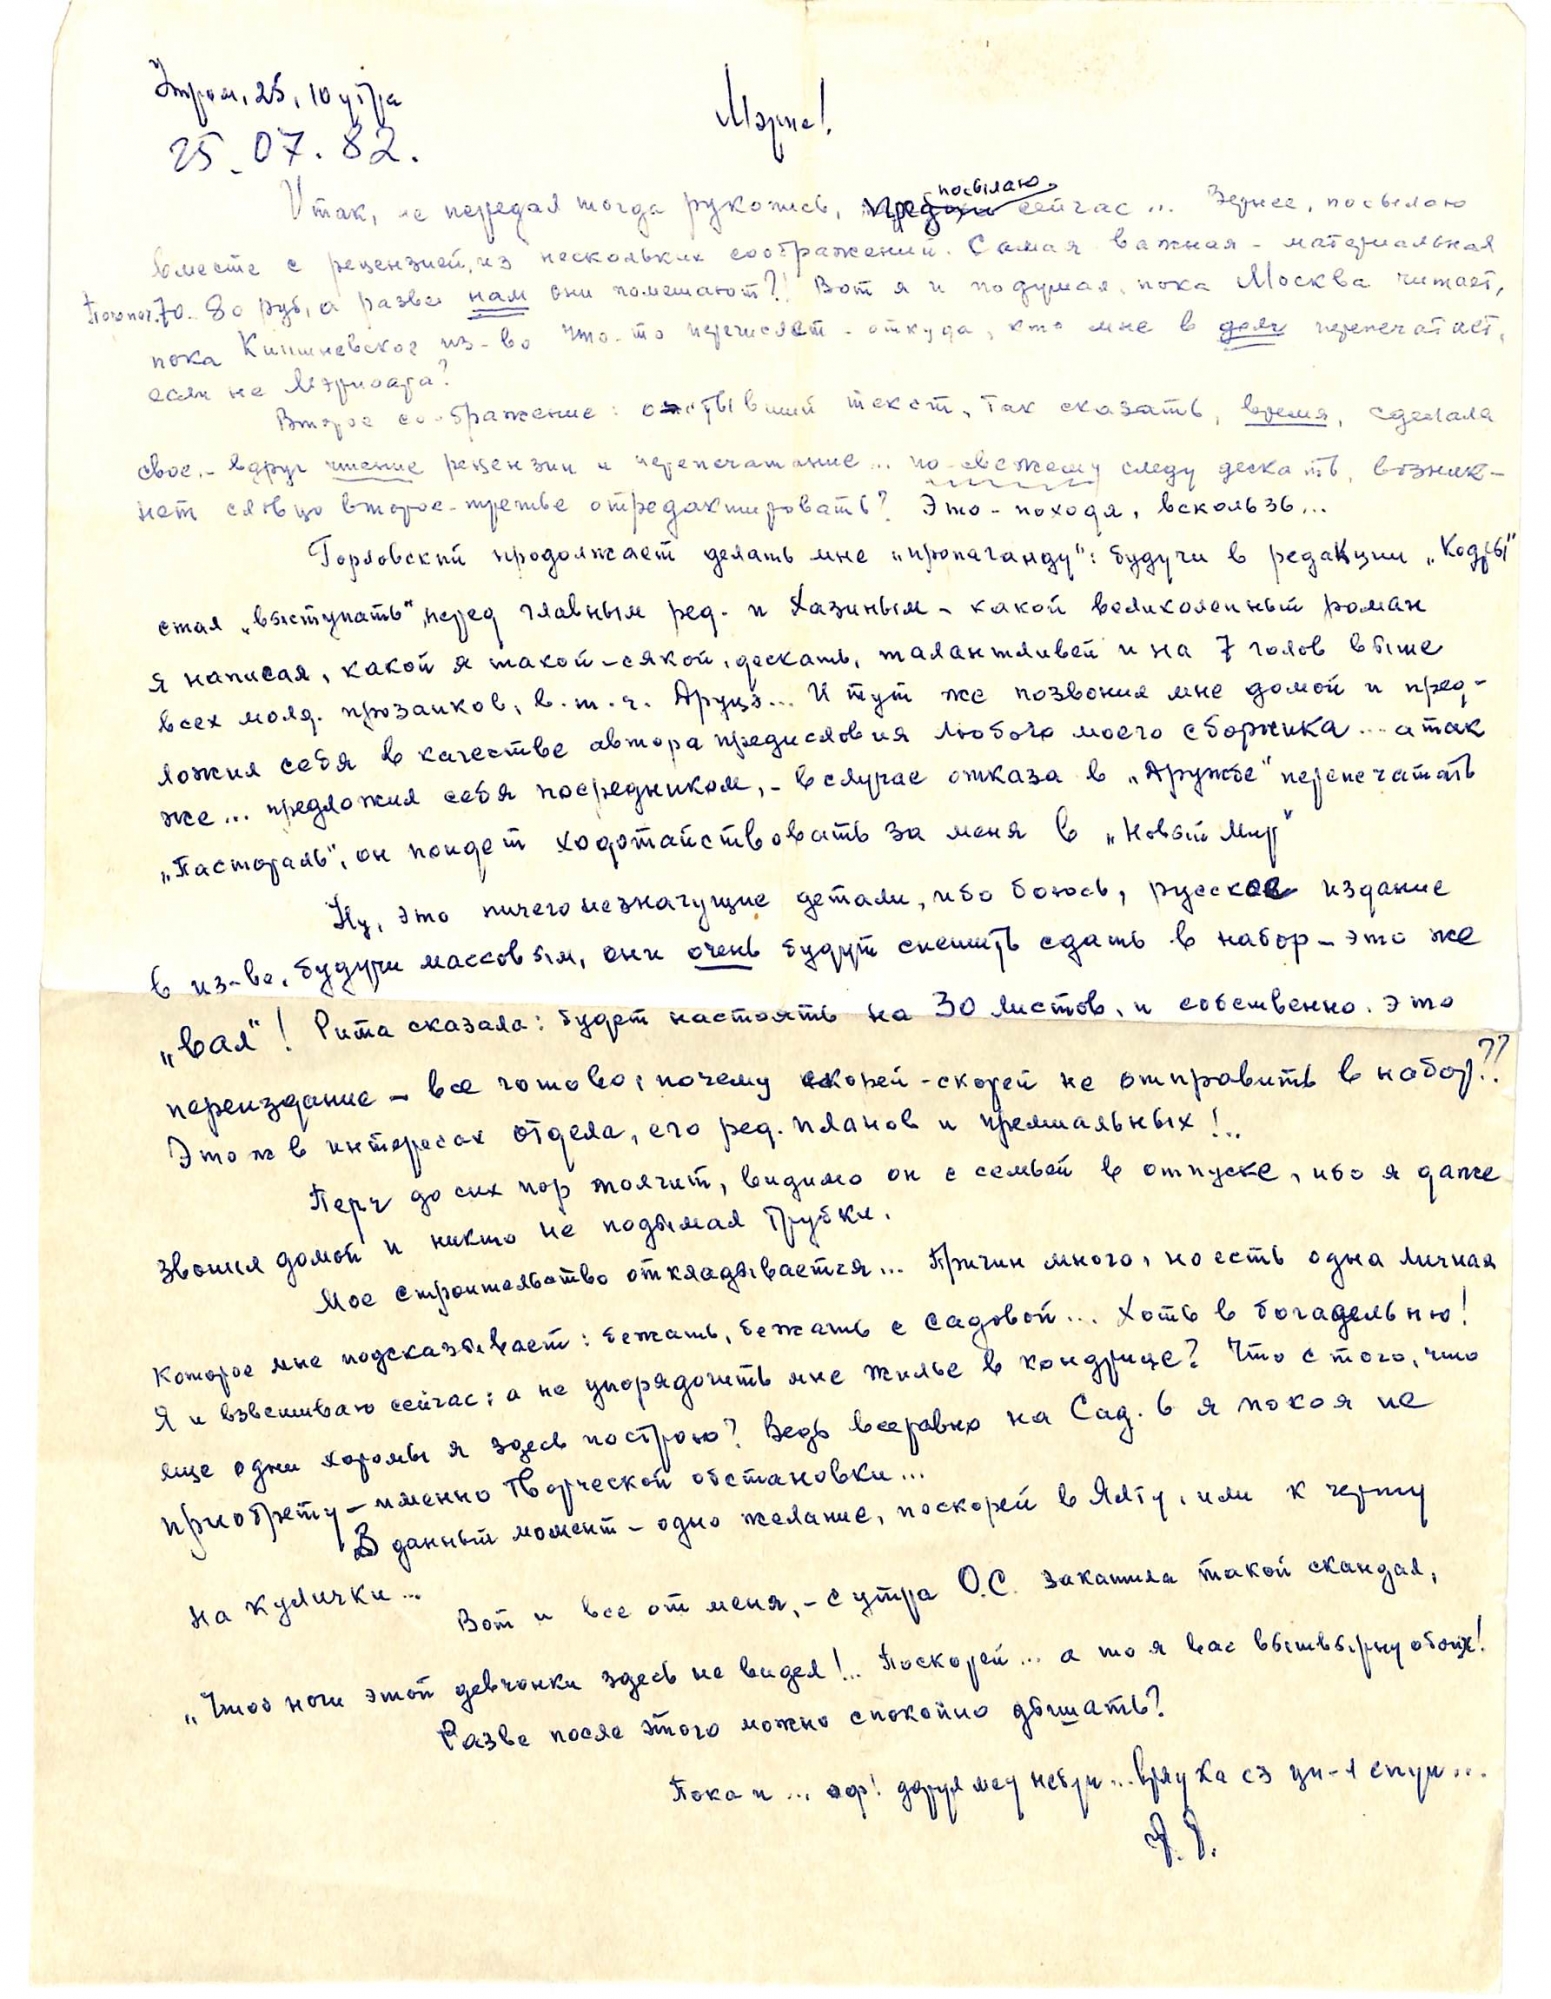 Утром, 25, 10 утра
25.07.82.
Мэрис!
Итак, не передал тогда рукопись, посылаю сейчас... Вернее, посылаю
вместе с рецензией, из нескольких соображений. Самая важная - материальная
70-80 руб, а разве нам они помешают?! Вот я и подумал, пока Москва читает,
пока Кишиневское из-во что-то перечислят - откуда, кто мне в долг перепечатает,
если не Мэриоара?
Второе соображение: остывший текст, так сказать, время, сделала
свое - вдруг чтение рецензии и перепечатание... по свежему следу дескать, возник-
нет словцо второе-третье отредактировать? Это - походя, вскользь...
Горловский продолжает делать мне "пропаганду": будучи в редакции "Кодры"
стал "выступать" перед главным ред. и Хазиным - какой великолепный роман
я написал, какой я такой-сякой, дескать, талантливей и на 7 голов выше
всех молд. прозаиков, в.т.ч. Друцэ... И тут же позвонил мне домой и пред-
ложил себя в качестве автора предисловия любого моего сборника... а так
же... предложил себя посредником, - в случае отказа в "Дружбе" перепечатать
"Пастораль", он пойдет ходотайствовать за меня в "Новый Мир"
Ну, это ничего незначущие детали, ибо боюсь, русское издание
в из-ве, будучи массовым, они очень будут спешить сдать в набор - это же
"вал"! Рита сказала: будет настоять на 30 листов, и собственно, это
переиздание - все готово, почему скорей-скорей не отправить в набор??
Это ж в интересах отдела, его ред. планов и премиальных!..
Перч до сих пор молчит, видимо он с семьей в отпуске, ибо я даже
звонил домой и никто не подымал трубки.
Мое строительство откладывается... Причин много, но есть одна личная
Которое мне подсказывает: бежать, бежать с Садовой... Хоть в богадельню!
Я и взвешиваю сейчас: а не упорядочить мне жилье в кондрице? Что с того, что
еще одни хоромы я здесь построю? Ведь всеравно на Сад. 6 я покоя не
приобрету - именно творческой обстановки...
В данный момент - одно желание, поскорей в Ялту, или к черту
на кулички...
Вот и все от меня, - с утра О.С. закатила такой скандал,
"Чтоб ноги этой девчонки здесь не видел!.. Поскорей... а то я вас вышвырну обоих!
Разве после этого можно спокойно дышать?
Пока и... оф! дорул меу небун... вряу ка сэ ци-л спун...